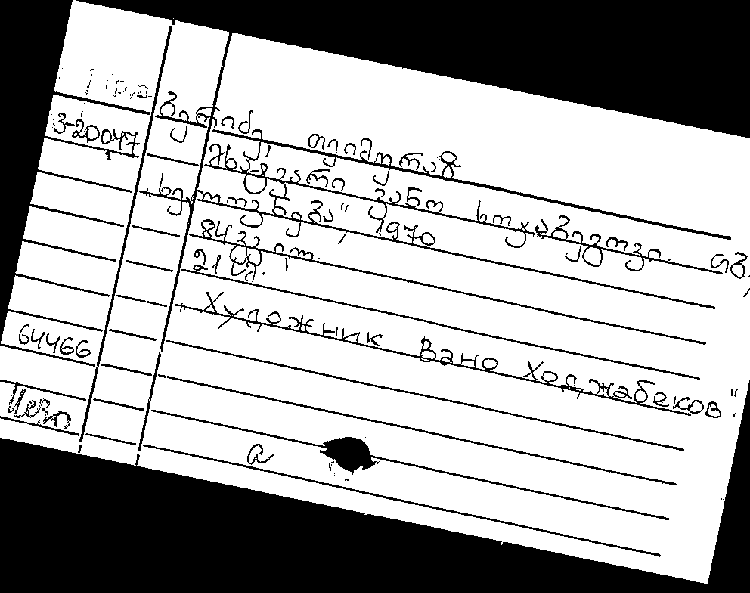 ბერიძე, თეიმურაზ
3-20047
მხატვარი ვანო ხოჯაბეგოვი. თბ.,
„ხელოვნება“, 1970
84 გვ.
21 სმ.
„Художник Вано Ходжабеков“.
64466
a